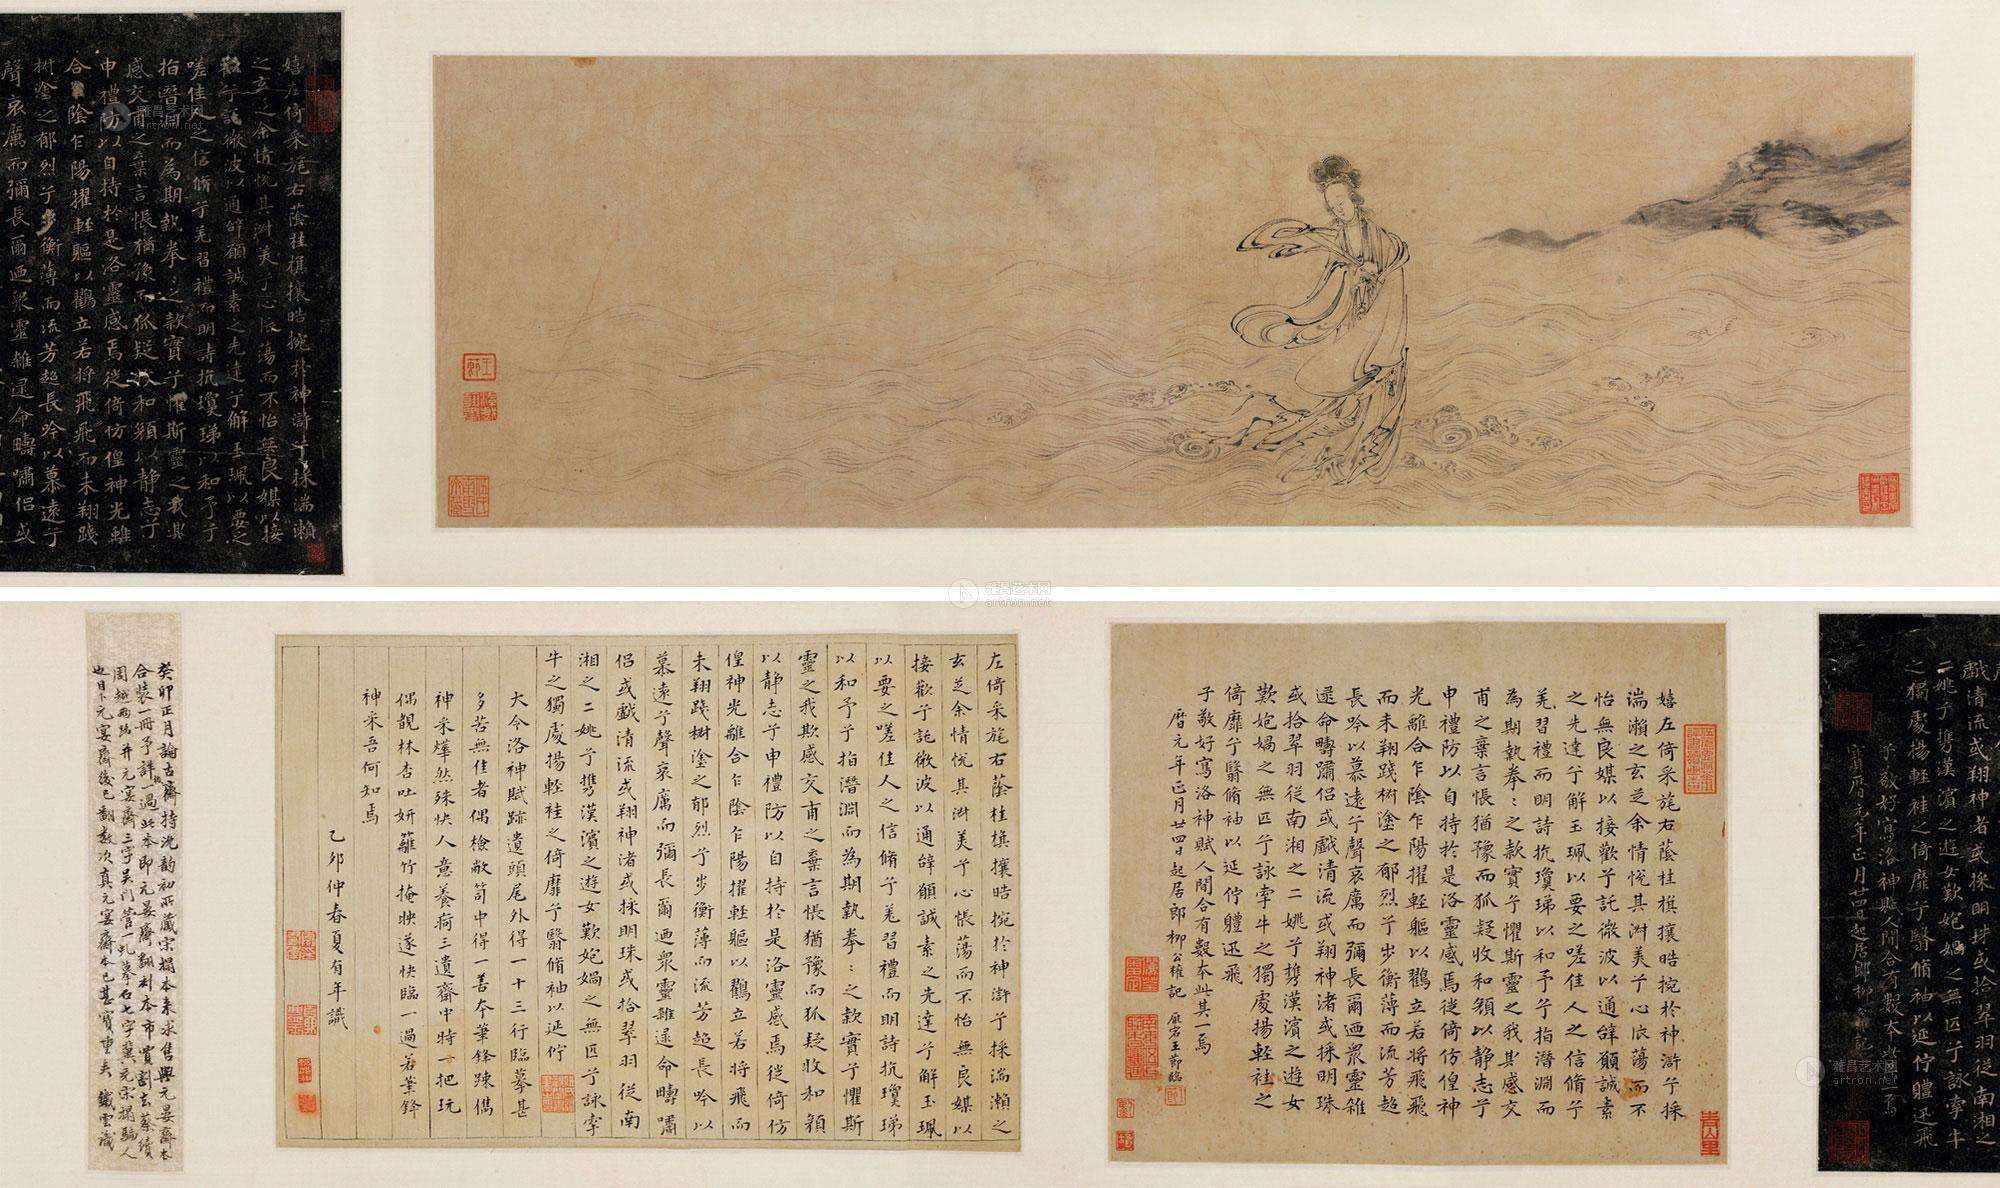 嬉左倚采旄右蔭桂旗攘皓捥於神滸兮採湍瀨
之玄芝余情悅其淑美兮心依蕩而不怡無良媒以接
歡兮託微波以通辭願誠素之先達兮解玉珮以要之
嗟佳人之信脩兮羌習禮而明詩抗瓊珶以和予兮
指潛淵而為期執拳〻之款實兮懼斯靈之我其
感交甫之棄言悵猶豫而狐疑收和顏以靜志兮
申禮防以自持於是洛靈感焉徙倚仿偟神光離
合陰乍陽擢輕軀以鸖立若將飛飛而未翔踐
樹塗之郁烈兮步衡薄而流芳超長吟以慕遠兮
聲哀厲而彌長爾迺衆靈雜遝命疇嘯侣或
雅昌艺术网
artron.net
戲清流或翔神者或採明珠或拾翠羽從南湘之
二姚兮攜漢濱之遊女歎妑媧之無匹兮詠牽牛
之獨處揚輕袿之倚靡兮翳脩袖以延佇體迅飛
子敬好寫洛神賦人間合有數本此其一焉
寶曆元年正月廿四日起居郎柳記
嬉左倚采旄右蔭桂旗攘皓捥於神滸兮採
湍瀨之玄芝余情悅其淑美兮心依蕩而不
怡無良媒以接歡兮託微波以通辭願誠素
之先達兮解玉珮以要之嗟佳人之信脩兮
羌習禮而明詩抗瓊珶以和予兮指潛淵而
為期執拳〻之款實兮懼斯靈之我其感交
甫之棄言悵猶豫而狐疑收和顏以靜志兮
申禮防以自持於是洛靈感焉徙倚仿偟神
光離合乍陰乍陽擢輕軀以鸖立若將飛飛
而未翔踐樹塗之郁烈兮步衡薄而流芳超
長吟以慕遠兮聲哀厲而彌長爾迺衆靈雜
遝命疇嘯侣或戲清流或翔神渚或採明珠
或拾翠羽從南湘之二姚兮攜漢濱之遊女
歎妑媧之無匹兮詠牽牛之獨處揚輕袿之
倚靡兮翳脩袖以延佇體迅飛
子敬好寫洛神賦人間合有數本此其一焉
曆元年正月廿四日起居郎柳公權記 王節臨
左倚采旄右蔭桂旗攘皓捥於神滸兮採湍瀨之
玄芝余情悅其淑美兮心悵蕩而不怡無良媒以
接歡兮託微波以通辭願誠素之先達兮解玉珮
以要之嗟佳人之信脩兮羌習禮而明詩抗瓊珶
以和予兮指潛淵而為期執拳〻之款實兮懼斯
靈之我欺感交甫之棄言悵猶豫而狐疑收和顏
以靜志兮申禮防以自持於是洛靈感焉徙倚仿
偟神光離合乍陰乍陽擢輕軀以鸖立若將飛而
未翔踐樹塗之郁烈兮步衡薄而流芳超長吟以
慕遠兮聲哀厲而彌長爾迺衆靈雜遝命疇嘯
侣或戲清流或翔神渚或採明珠或拾翠羽從南
湘之二姚兮攜漢濱之遊女歎妑媧之無匹兮詠牽
牛之獨處揚輕袿之倚靡兮翳脩袖以延佇
大令洛神賦跡遺頭尾外得一十三行臨摹甚
多苦無佳者偶檢敝笥中得一善本筆鋒踈儁
神采燁然殊快人意養痾三遺齋中時一把玩
偶覩林杏吐妍籬竹掩映遂快臨一過若筆鋒
神采吾何知焉
乙卯仲春夏有年識
癸卯正月論古齋持沈韵初所藏宋搨本来求售與元晏齋本
合裝一冊予詳一過此本即元晏齋翻刻本市賈割去蔡績
周越兩跋并元宴齋三字吴門管一虬摹石七字冀充宋搨騙人
也目下元宴齋後已翻數次真元宴齋本已甚寶重矣 鐵雲識